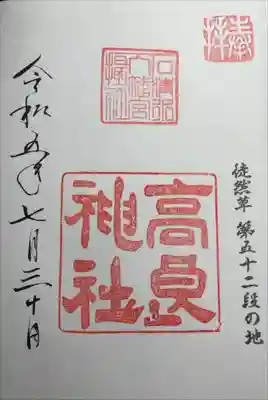 奉拝
徒然草 第五十二段の地
石清水
八幡宮
摂社
高良
神社
令和五年七月三十日